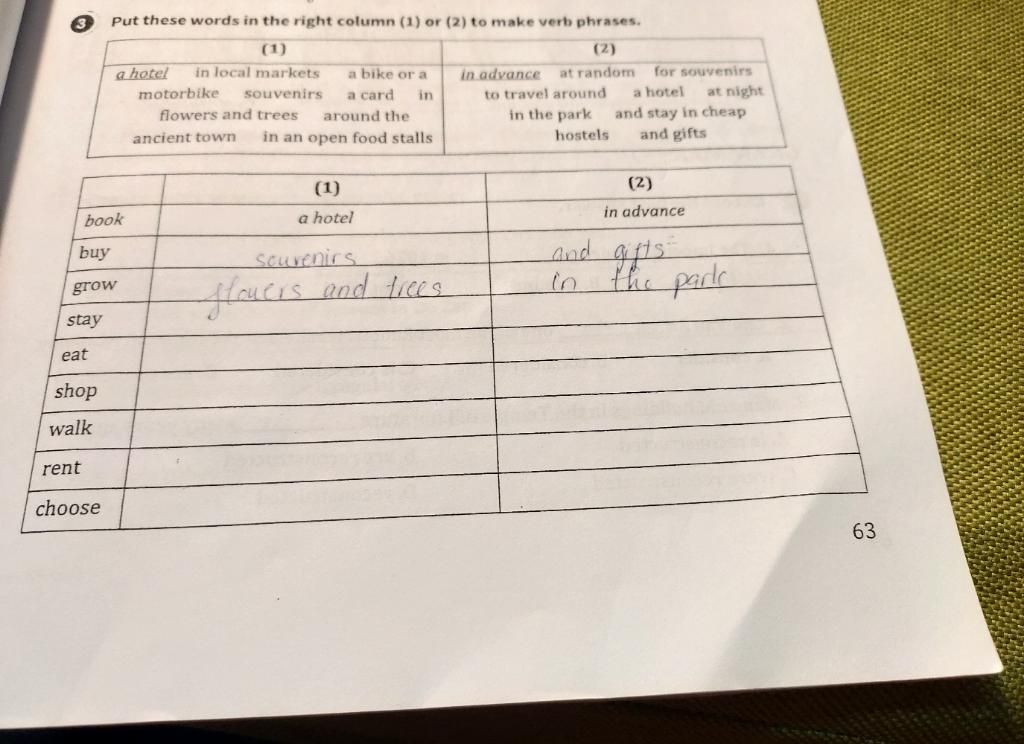 3 Put these words in the right column (1) or (2) to make verb phrases.
(1) (2)
a hotel in local markets a bike or a
motorbike souvenirs a card in
flowers and trees around the
ancient town in an open food stalls
in advance at random for souvenirs
to travel around a hotel at night
in the park and stay in cheap
hostels and gifts
(1) (2)
book a hotel in advance
buy souvenirs and gifts
grow flowers and trees in the park
stay
eat
shop
walk
rent
choose
63